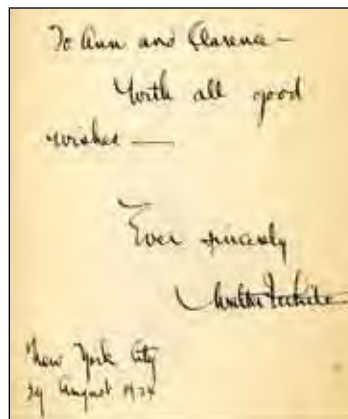 To Ann and Clarence —
With all good
wishes —
Ever sincerely
Walter
New York City
29 August 1934